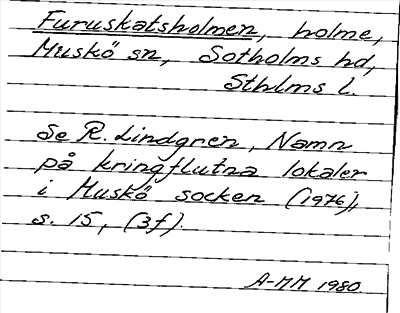 Furuskatsholmen, holme,
Muskö sn, Sotholms hd,
Sthlms l.
Se R. Lindgren, Namn
på kringflutna lokaler
i Muskö socken (1976),
s. 15, (3f).
A-MM 1980.